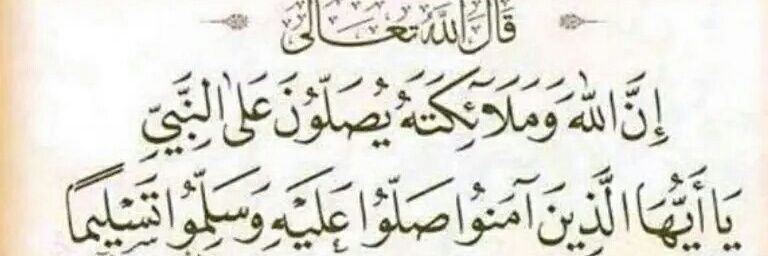 قَالَ اللَّهُ تَعَالَى
إِنَّ اللَّهَ وَمَلَائِكَتَهُ يُصَلُّونَ عَلَى النَّبِيِّ
يَا أَيُّهَا الَّذِينَ آمَنُوا صَلُّوا عَلَيْهِ وَسَلِّمُوا تَسْلِيمًا